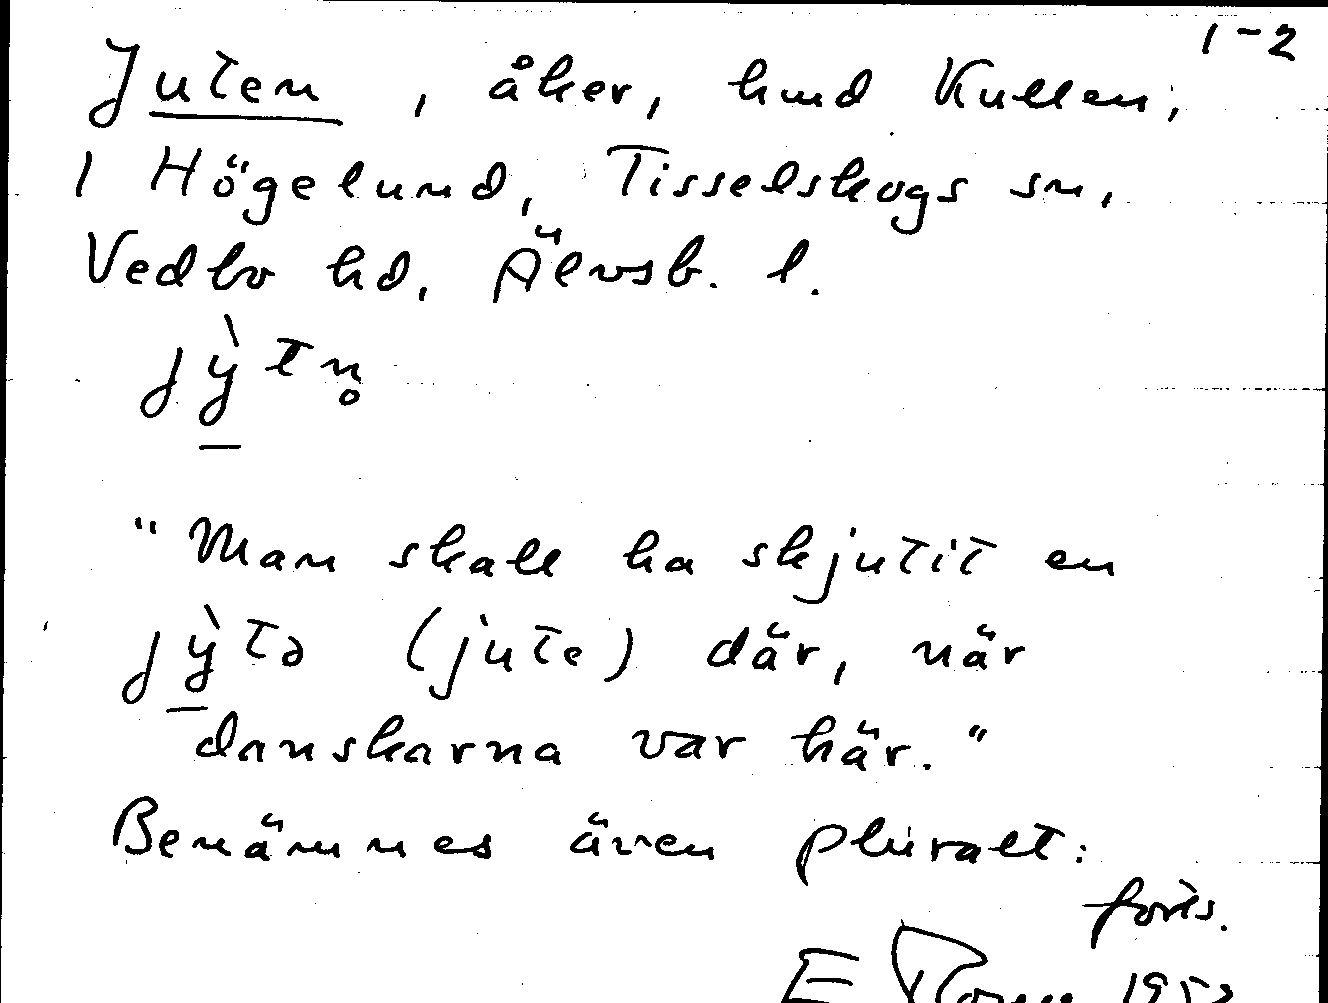 1-2
Juten, åker, hmd Kullen,
1 Högelund, Tisselskogs sn,
Vedbo hd, Älvsb. l.
jỳtn̥
"Man skall ha skjutit en
jỳtə (jute) där, när
danskarna var här."
Benämnes även pluralt:
forts.
E 1953